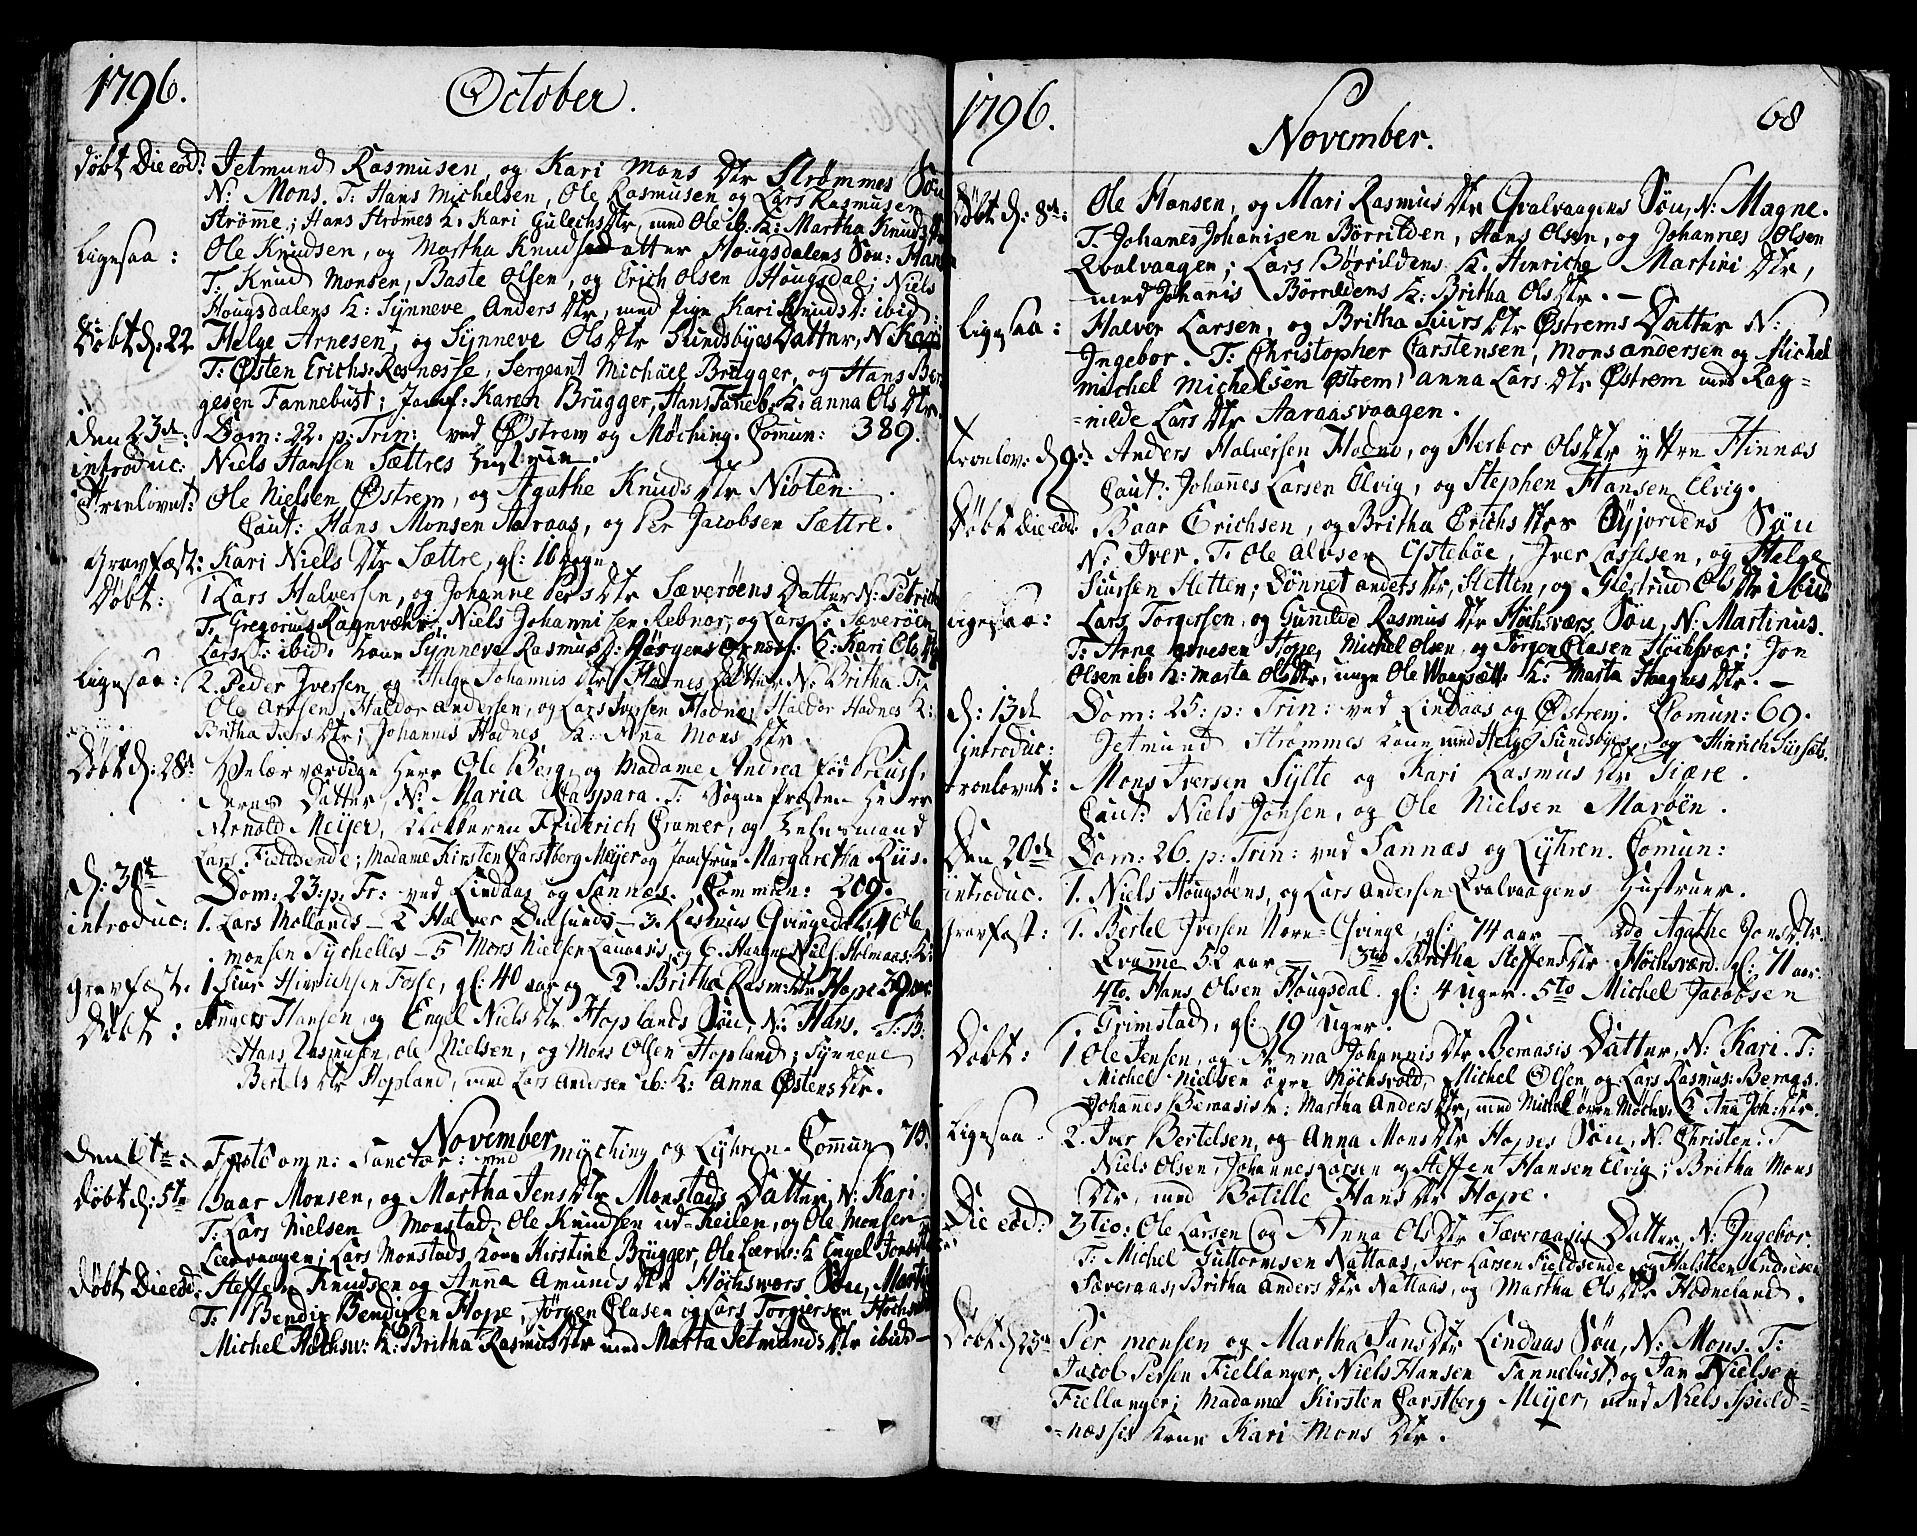 1796. October.
Döbt Die eod: Jetmund Rasmusen, og Kari Mons Dtr Strømmes Søn
N: Mons. T: Hans Michelsen, Ole Rasmusen og Lars Rasmusen
Strømme; Hans Strømes K. Kari Gulechs Dtr, med Ole ib: K: Martha Knuds Dtr
Ligesaa: Ole Knudsen, og Martha Knudsdatter Hougsdalens Søn: Hans
T: Knud Monsen, Baste Olsen, og Erich Olsen Hougsdal; Niels
Hougsdalens K: Synneve Anders Dtr, med Pige Kari Knuds D: ibid:
Döbt d: 22 Helge Arnesen, og Synneve Ols Dtr Sundsbyes Datter, N: Kari
T: Østen Erichs: Rosnesse, Sergeant Michael Brügger, og Hans Bør
gesen Fannebust; Jomf: Karen Brügger, Hans Faneb: K: Anna Ols Dtr.
den 23de: Dom: 22. p: Trin: ved Østrem og Møching. Comun: 389.
introduc: Niels Hansen Sættres Hustrue.
Tronlovet: Ole Nielsen Østrem, og Agathe Knuds Dtr Nibten
Caut: Hans Monsen Aaraas, og Per Jacobsen Sættre.
Gravfæst: Kari Niels Dtr Sættre, gl: 16 dage
Döbt: 1 Lars Halversen, og Johanne Pers Dtr Sæverøens Datter N: Petrich
T: Gregorius Ragnvalds, Niels Johannisen Rebnor, og Lars Sæverøen
Lars D: ibid. Kone Synneve Rasmus D: K: Kari Ols Dtr
Ligesaa: 2. Peder Iversen og Helge Johannis Dtr Hodnes Datter N: Britha. T:
Ole Arnsen, Haldor Andersen, og Lars Iversen Hodne; Haldor Hodnes K:
Britha Ivers Dtr; Johannis Hodnes K: Anna Mons Dtr.
Döbt d: 28de Velærværdige Herr Ole Berg, og Madame Andrea fød Preuss,
deres Datter, N: Maria Caspara. T: Sogne Præsten Herr
Arnold Meijer, Friderich Cramer, og Lehnsmand
Lars Fieldsende; Madame Kirsten Carstberg Meijer og Jomfrue Margaretha Riis.
d: 30te Dom: 23: p: Tr: ved Lindaas og Sannæs. Commun: 209.
introduc: 1. Lars Mollands — 2 Halver — 3. Rasmus Qvingedals, 4 Ole
Monsen Tychelles — 5 Mons Nielsen Lauaasis, og 6. Haagne Niels: Holmaas: K:
gravfæst. 1 Siur Hinrichsen Fosse, gl: 40 aar og 2. Britha Rasm: Dtr Hope 39 aar
Döbt: Anders Hansen, og Engel Niels Dtr Hoplands Søn, N: Hans. T:
Hans Rasmusen, Ole Nielsen, og Mons Olsen Hopland; Synneve
Bertels Dtr Hopland, med Lars Andersen ib: K: Anna Østens Dtr.
November
den 1te: Festo omn: Sanctor: ved Myching og Lyhren. Comun 75.
Döbt d: 5te Baar Monsen, og Martha Jens Dtr Monstads Datter, N: Kari
T: Lars Nielsen Monstad, Ole Knudsen ud-Keilen, og Ole Monsen
Leervaagen; Lars Monstads Kone Kirstine Brügger, Ole Leerv: K Engel Jons Dtr
Döbt Die eod. Steffen Knudsen og Anna Amunds Dtr Höchsværs Søn, Martin
T: Bendix Bendixen Hope, Jörgen Clasen og Lars Torgiersen Høchsv
Michel Höchsv: K: Britha Rasmus Dtr med Marta Jetmunds Dtr ibid —
1796. November. 68
Döbt d: 8de: Ole Hansen, og Mari Rasmus Dtr Qvalvaagens Søn, N: Magne.
T: Johanes Johanisen Börrilden, Hans Olsen, og Johannes Olsen
Qvalvaagen; Lars Börrildens K. Hinriche Martini Dtr,
med Johanis Börrildens K: Britha Ols Dtr. —
Ligesaa: Halver Larsen, og Britha Siurs Dtr Østrems Datter N:
Ingebor. T: Christopher Carstensen, Mons Andersen og Michel
Michel Michelsen Østrem; Anna Lars Dtr Østrem med Rag=
=nilde Lars Dtr Aaraasvaagen.
Tronlov: d: 9de: Anders Halversen Hodne, og Herbor Ols Dtr yttre Hinnæs
Caut: Johannes Larsen Elvig, og Stephen Hansen Elvig.
Döbt Die eod. Baar Erichsen, og Britha Erichs Dtr Öyjordens Søn
N: Iver. T: Ole Alvsen Östeböe, Iver Lassesen, og Helge
Siursen Hetten; Dönnet Anders Dtr, Hetten, og Giertrud Ols Dtr ibid
Ligesaa: Lars Torgersen, og Gunilde Rasmus Dtr Höchsværs Søn, N: Martinus.
T: Arne Arnesen Hope, Michel Olsen, og Jörgen Clasen Höchsvær; Jon
Olsen ib: K: Marta Ols Dtr, unge Ole Waagsætt: K: Marta Haagnes Dtr. —
d: 13de Dom: 25: p: Trin: ved Lindaas og Østrem. Comun: 69.
introduc: Jetmund Strømmes Kone med Helge Sundsbyes, og Hinrich
Tronlovet: Mons Iversen Sylte og Kari Rasmus Dtr Siære.
Caut: Niels Jonsen, og Ole Nielsen Maröen.
Den 20de Dom: 26. p: Trin: ved Sannæs og Lyhren. Comun:
introduc. 1. Niels Hougsöens, og Lars Andersen Qvalvaagens Hustruer.
gravfæst: 1. Bertel Iversen Norn-Qvinge, gl: 74 aar — 2do Agathe Jons Dtr
Qvamme 52 aar — 3tio Britha Steffens Dtr Höchsværd. gl: 71 aar.
4to. Hans Olsen Hougsdal. gl: 4 uger. 5to Michel Jacobsen
Grimstad, gl: 19 uger.
Döbt: 1 Ole Jensen, og Anna Johannis Dtr Beraasis Datter, N: Kari. T:
Michel Nielsen övre Möchsvold, Michel Olsen, og Lars Rasmus: Beraas.
Johannes Beraasis K: Martha Anders Dtr, med Michel övre Möchv: K Ane Joh: Dtr.
Ligesaa. 2. Iver Bertelsen, og Anna Mons Dtr Hopes Søn, N: Christen: T
Niels Olsen, Johannes Larsen og Steffen Hansen Elvig; Britha Mons
Dtr, med Botille Hans Dtr Hope.
Die eod: 3tio: Ole Larsen (og Anna Ols Dtr Sæveraasis Datter, N: Ingebor
T: Michel Guttormsen Nattaas, Iver Larsen Fieldsende, og Halsteen Andersen
Sæveraas, Britha Anders Dtr Nattaas, og Martha Ols Dtr Hodneland.
Döbt d 23de Per Monsen og Martha Jans Dtr Lindaas Søn, N: Mons. T:
Jacob Persen Fiellanger, Niels Hansen Fannebust, og Jan Nielsen
Fiellanger; Madame Kirsten Carstberg Meijer, med Niels Spield-
=næssis Kone Kari Mons Dtr.